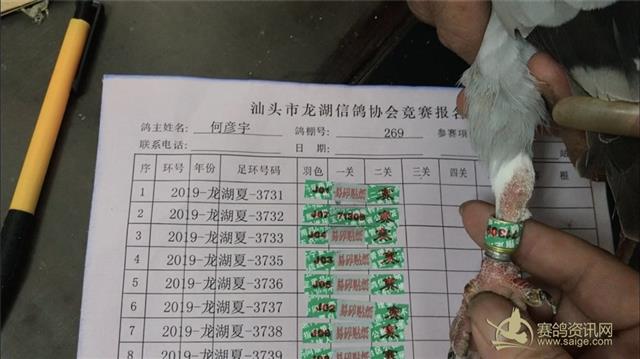 汕头市龙湖信鸽协会竞赛报名
鸽主姓名: 何彦宇 鸽棚号: 269 参赛项
联系电话: 日 期:
序 环号 年份 足环号码 羽色 一关 二关 三关 四关 根
1 2019-龙湖夏-3731 J01 易碎贴纸
2 2019-龙湖夏-3732 J07
3 2019-龙湖夏-3733 J04 易碎贴纸
4 2019-龙湖夏-3735 J03 易碎贴纸
5 2019-龙湖夏-3736 J05 易碎贴纸
6 2019-龙湖夏-3737 J02 易碎贴纸
7 2019-龙湖夏-3738 易碎贴纸
8 2019-龙湖夏-3739
赛鸽资讯网
www.saige.com